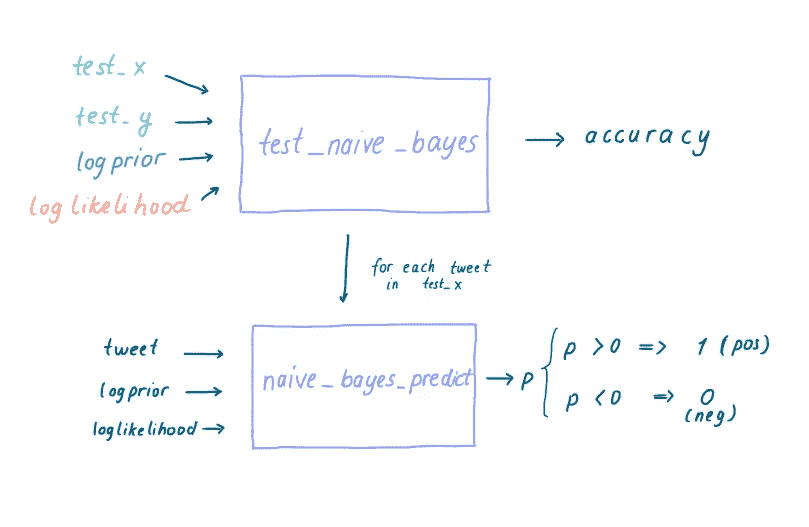 test_x
test_y
logprior
loglikelihood
test_naive_bayes
accuracy
for each tweet
in test_x
tweet
logprior
loglikelihood
naive_bayes_predict
p
p >0 => 1 (pos)
p <0 => 0
(neg)